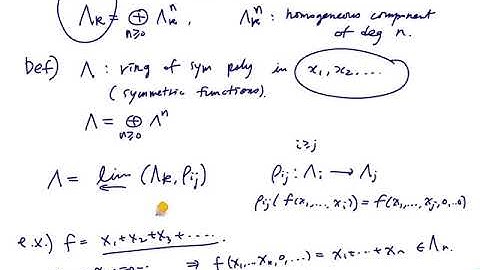 Λ_k = ⊕_{n≥0} Λ_k^n , Λ_k^n : homogeneous component of deg n.
Def) Λ : ring of sym poly in x₁, x₂, ....
(symmetric functions).
Λ = ⊕_{n≥0} Λ^n
i≥j
Λ = lim← (Λ_k, ρ_ij) ρ_ij : Λ_i → Λ_j
ρ_ij(f(x₁,...,x_i)) = f(x₁,...,x_j,0,..0)
e.x.) f = x₁+x₂+x₃+.....
⇒ f(x₁,...x_n,0,...) = x₁+...+x_n ∈ Λ_n.